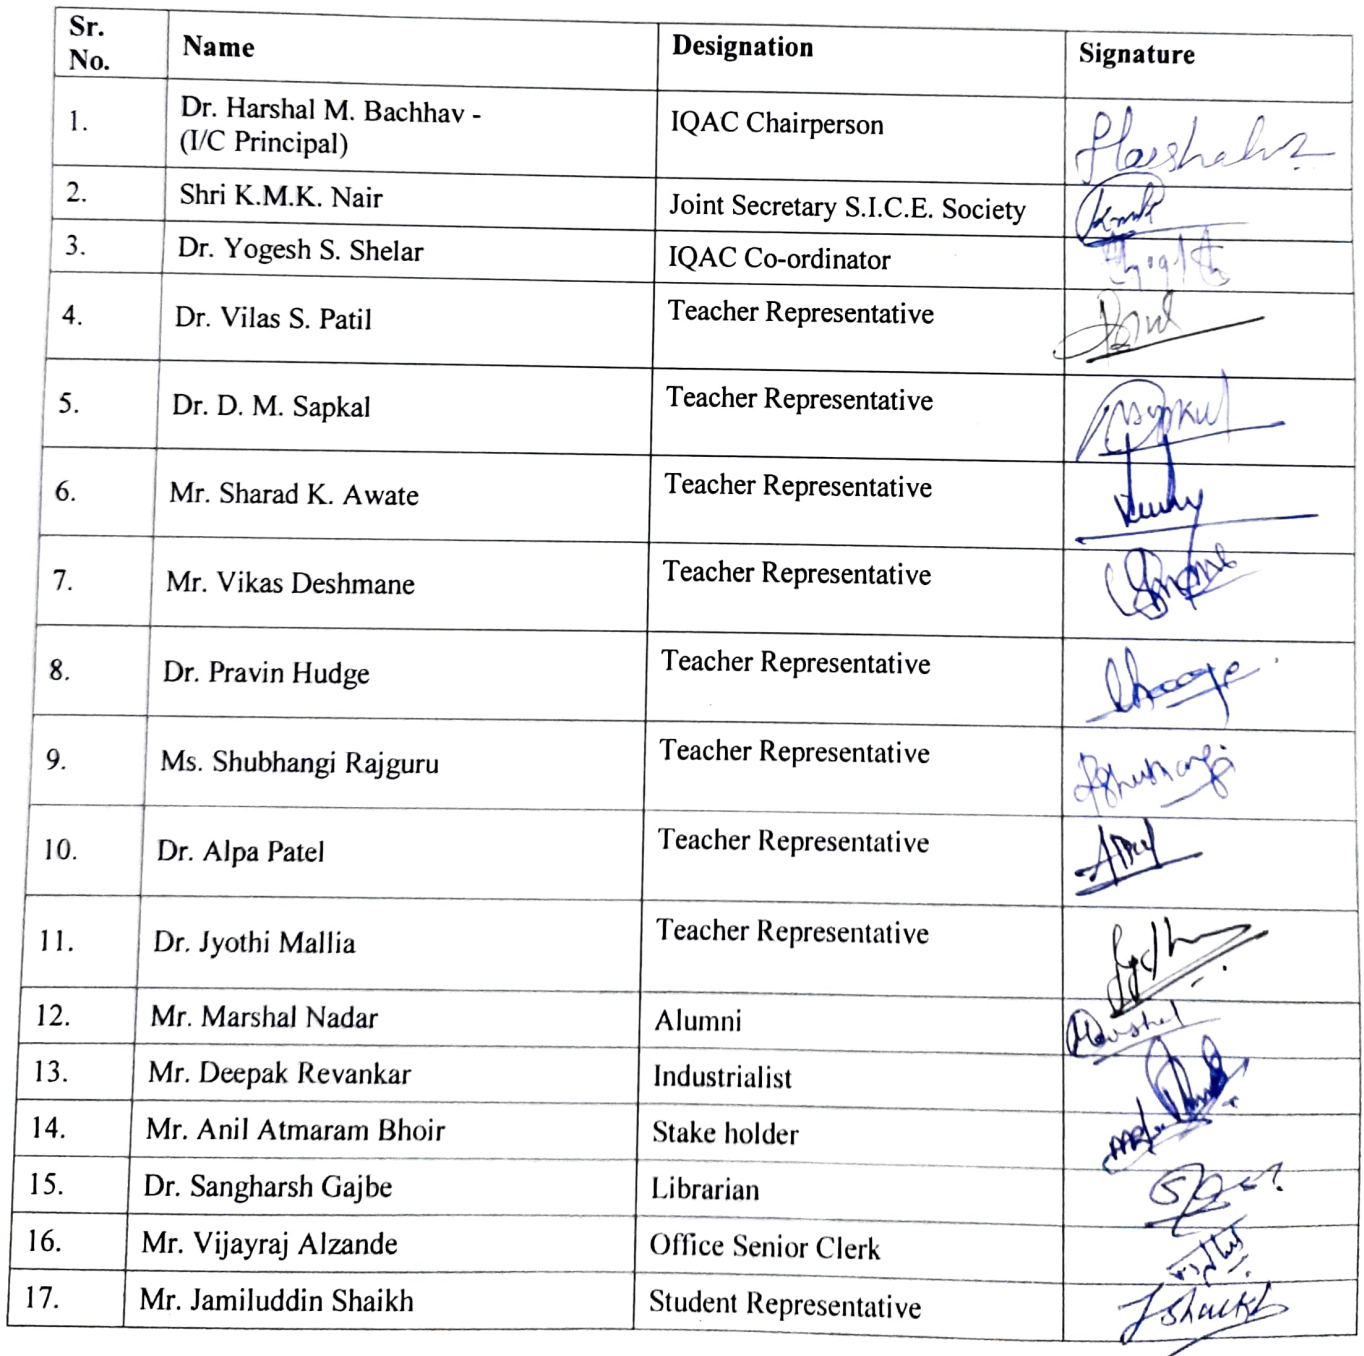 Sr. No. Name Designation Signature
1. Dr. Harshal M. Bachhav - (I/C Principal) IQAC Chairperson
2. Shri K.M.K. Nair Joint Secretary S.I.C.E. Society
3. Dr. Yogesh S. Shelar IQAC Co-ordinator
4. Dr. Vilas S. Patil Teacher Representative
5. Dr. D. M. Sapkal Teacher Representative
6. Mr. Sharad K. Awate Teacher Representative
7. Mr. Vikas Deshmane Teacher Representative
8. Dr. Pravin Hudge Teacher Representative
9. Ms. Shubhangi Rajguru Teacher Representative
10. Dr. Alpa Patel Teacher Representative
11. Dr. Jyothi Mallia Teacher Representative
12. Mr. Marshal Nadar Alumni
13. Mr. Deepak Revankar Industrialist
14. Mr. Anil Atmaram Bhoir Stake holder
15. Dr. Sangharsh Gajbe Librarian
16. Mr. Vijayraj Alzande Office Senior Clerk
17. Mr. Jamiluddin Shaikh Student Representative JShaikh